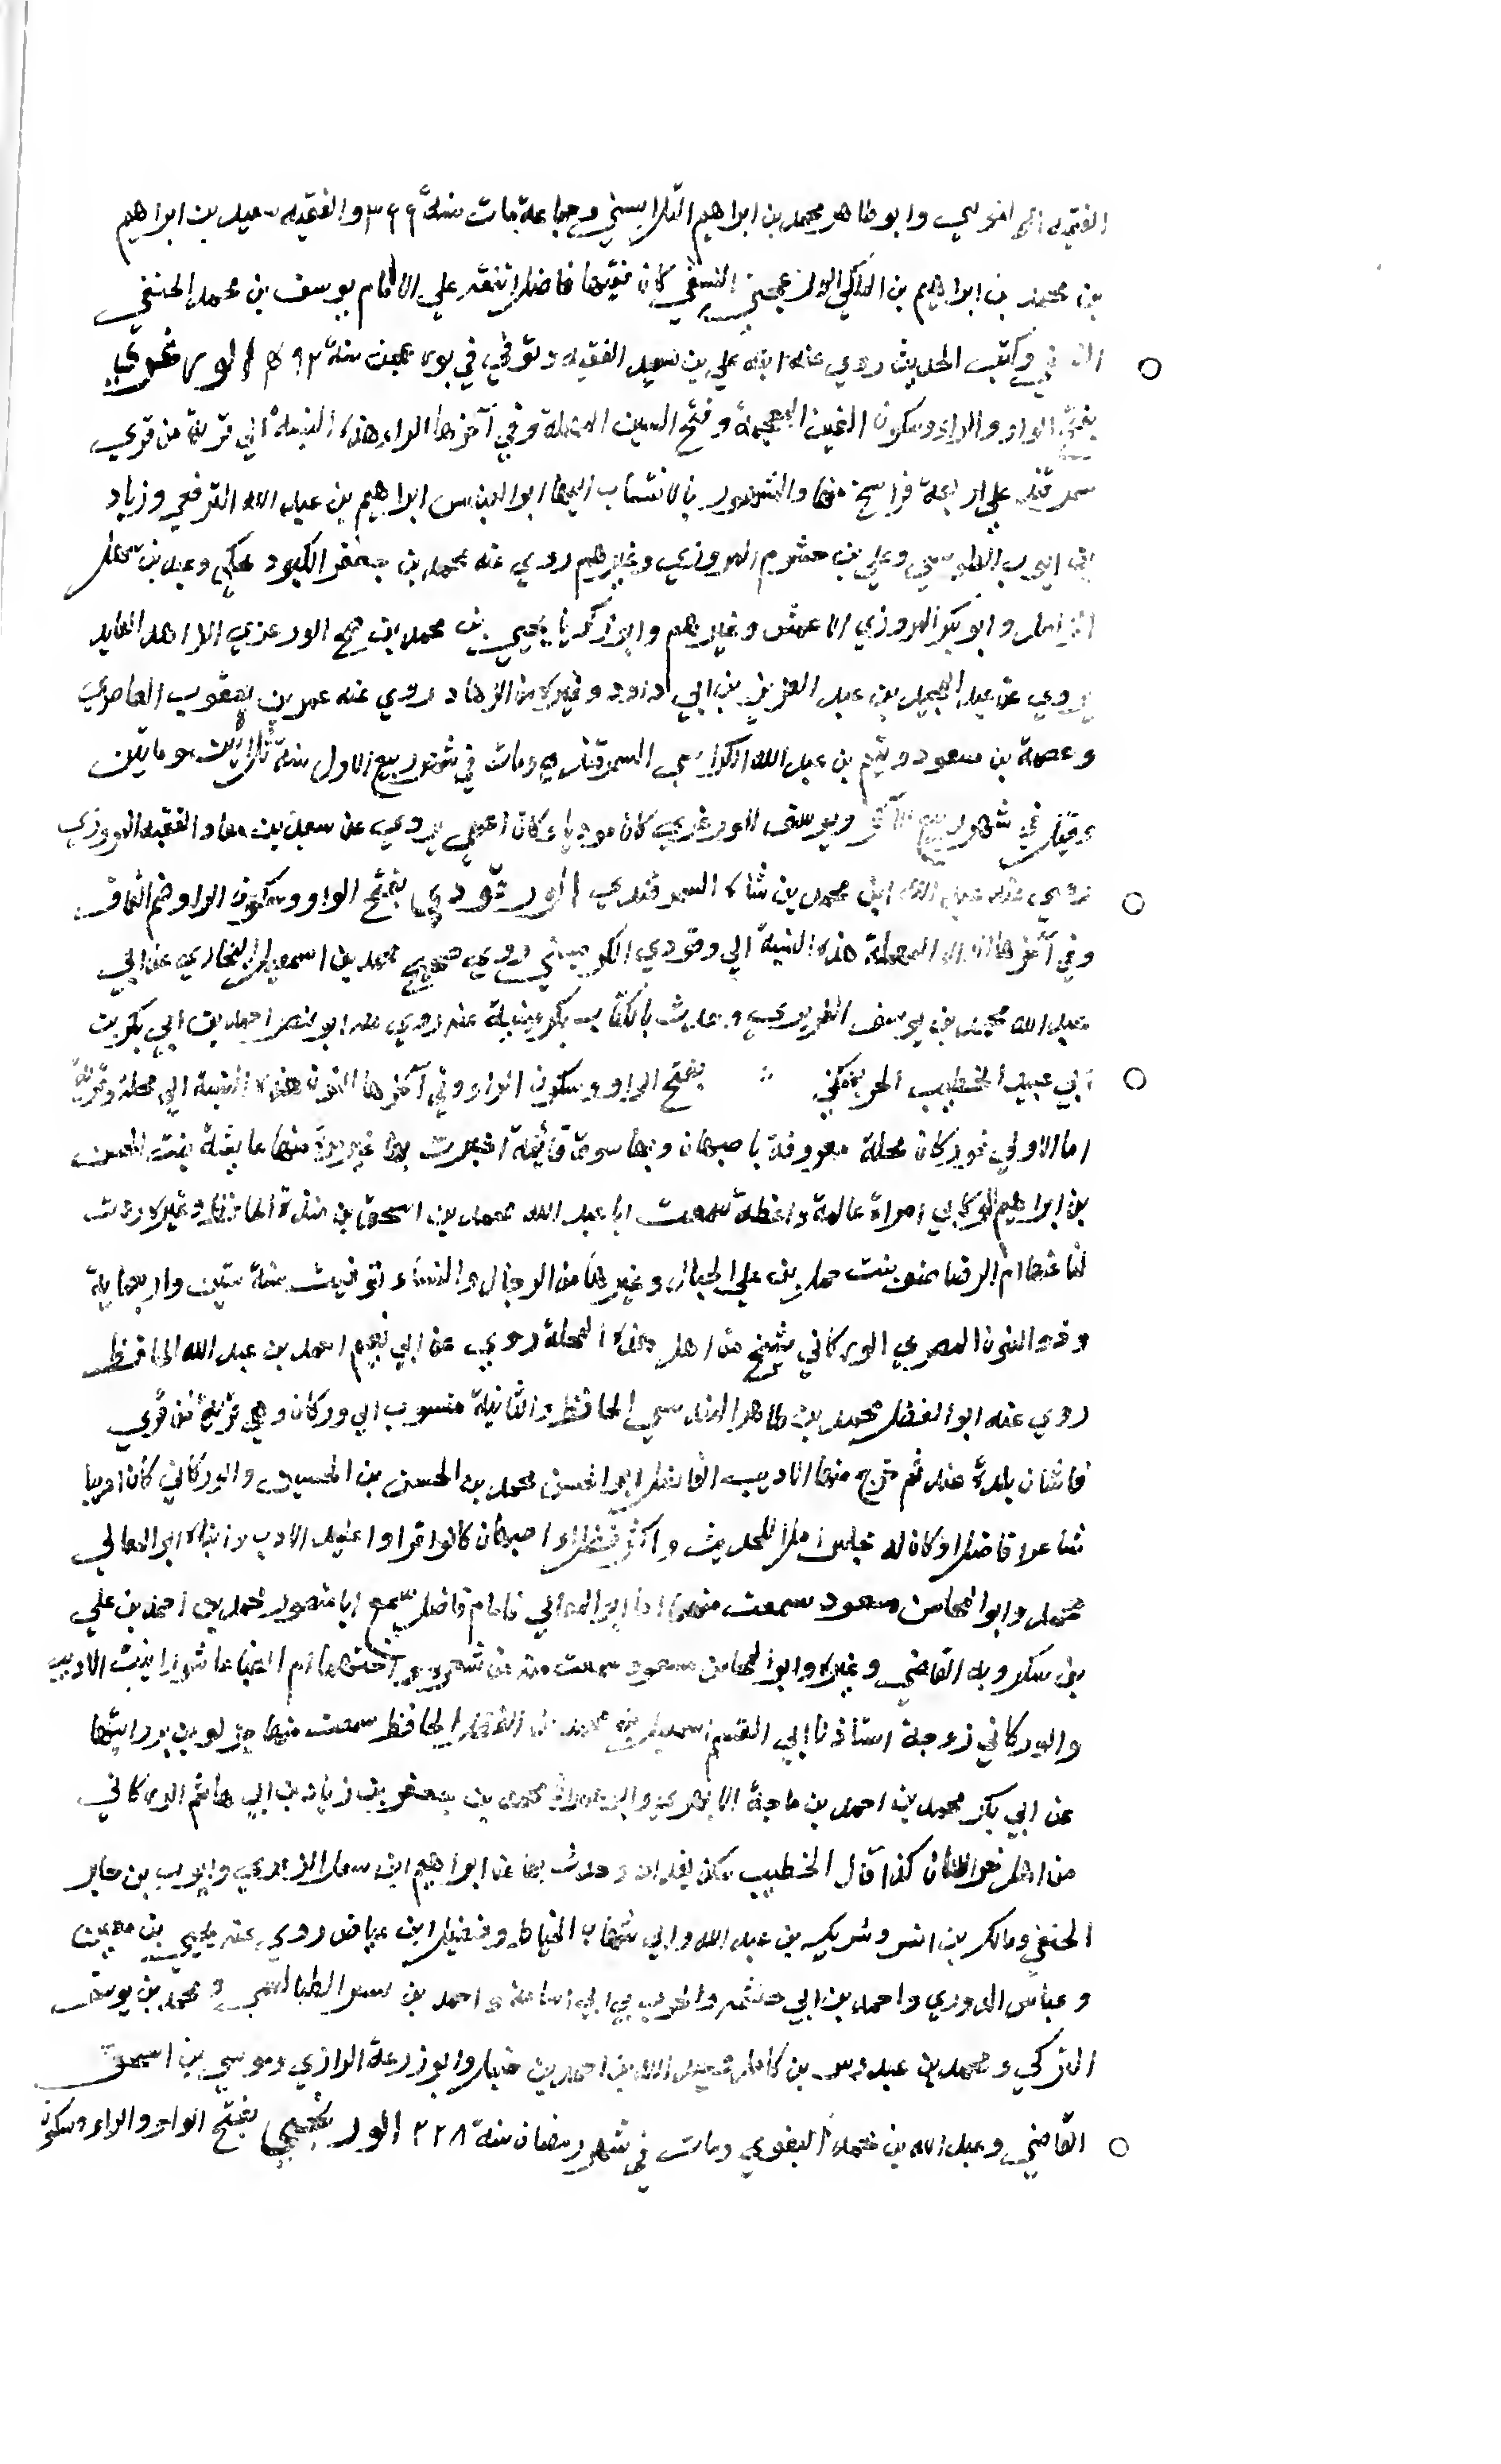 الفقيه وابو طاهر محمد بن ابراهيم وجماعة مات سنة ٣٦٩ والفقيه سعيد بن ابراهيم
بن محمد بن ابراهيم بن النسفي كان فقيها فاضلا تفقه علي الامام يوسف بن محمد الحنفي
وكتب الحديث روي عنه ابنه علي بن سعيد الفقيه وتوفي في سنة
بفتح الواو والراء وسكون الغين المعجمة وفتح السين المهملة وفي آخرها الراء هذه النسبة الي قرية من قري
سمرقند علي اربعة فراسخ منها والمشهور بالانتساب اليها ابو العباس ابراهيم بن عبد الله وزياد
بن ايوب الطوسي وعلي بن حشرم المروزي وغيرهم روي عنه محمد بن جعفر الكبود
وابو بكر المروزي الاعمش وغيرهم وابو زكريا يحيي بن محمد بن الزاهد العابد
يروي عن عبد المجيد بن عبد العزيز بن ابي داود وغيره من الزهاد روي عنه عمر بن يعقوب العامري
وعصمة بن مسعود بن عبد الله السمرقندي ومات في شهر ربيع الاول سنة ومايتين
وقيل في شهر ربيع الآخر ويوسف كان وكان اعمي يروي عن بن معاد الفقيه المروزي
روي عنه عبد الله ابن محمد بن شاه السمرقندي الورقودي بفتح الواو وسكون الراء وضم القاف
وفي آخرها الدال المهملة هذه النسبة الي ورقودي روي صحيح محمد بن اسمعيل البخاري عن ابي
عبد الله محمد بن يوسف الفربري وحدث بالكتاب عنه روي عنه ابو نصر احمد بن ابي بكر بن
ابي عبيد الخطيب بفتح الواو وسكون الراء وفي آخرها النون هذه النسبة الي محلة وقرية
اما الاولي فوركان محلة معروفة باصبهان وبها سوق قائمة منها عايشة بنت الحسن
بن ابراهيم الوركاني امراة عالمة واعظة سمعت ابا عبد الله محمد بن اسحق بن مندة الحافظ وغيره روت
لنا عنها ام الرضا ضو بنت حمد بن علي الحبال وغيرها من الرجال والنساء توفيت سنة ستين واربعماية
وذو النون المصري الوركاني شيخ من اهل هذه المحلة روي عن ابي نعيم احمد بن عبد الله الحافظ
روي عنه ابو الفضل محمد بن طاهر المقدسي الحافظ والثانية منسوب الي وركان وهي قرية من قري
قاشان بلدة عند قم خرج منها الاديب الفاضل ابو الحسن محمد بن الحسن بن الحسين والوركاني كان اديبا
شاعرا فاضلا وكان له مجلس املا للحديث واكثر فضلاء اصبهان كانوا قراوا عليه الادب وابناه ابو المعالي
محمد وابو المحاسن مسعود سمعت منهما اما ابو المعالي فامام فاضل سمع ابا منصور محمد بن احمد بن علي
بن شكرويه القاضي وغيره وابو المحاسن مسعود سمعت منه من شعره واختهما ام الضيا عاشورا بنت الاديب
والوركاني زوجة استاذنا ابي القسم اسمعيل بن محمد بن الفضل الحافظ سمعت منها جز لوين بروايتها
عن ابي بكر محمد بن احمد بن ماجة الابهري وابو عمران محمد بن جعفر بن زياد بن ابي هاشم الوركاني
من اهل خراسان كذا قال الخطيب سكن بغداد وحدث بها عن ابراهيم ابن سعد الزهري وايوب بن جابر
الحنفي ومالك بن انس وشريك بن عبد الله وابي شهاب الخياط وفضيل ابن عياض روي عنه يحيي بن معين
وعباس الدوري واحمد بن ابي خيثمه والحرث بن ابي اسامة واحمد بن الطيالسي ومحمد بن يوسف
التركي ومحمد بن عبدوس بن كامل وعبد الله بن احمد بن حنبل وابو زرعة الرازي وموسي بن اسحق
القاضي وعبد الله بن محمد البغوي ومات في شهر رمضان سنة ٢٢٨ بفتح الواو والراء وسكون